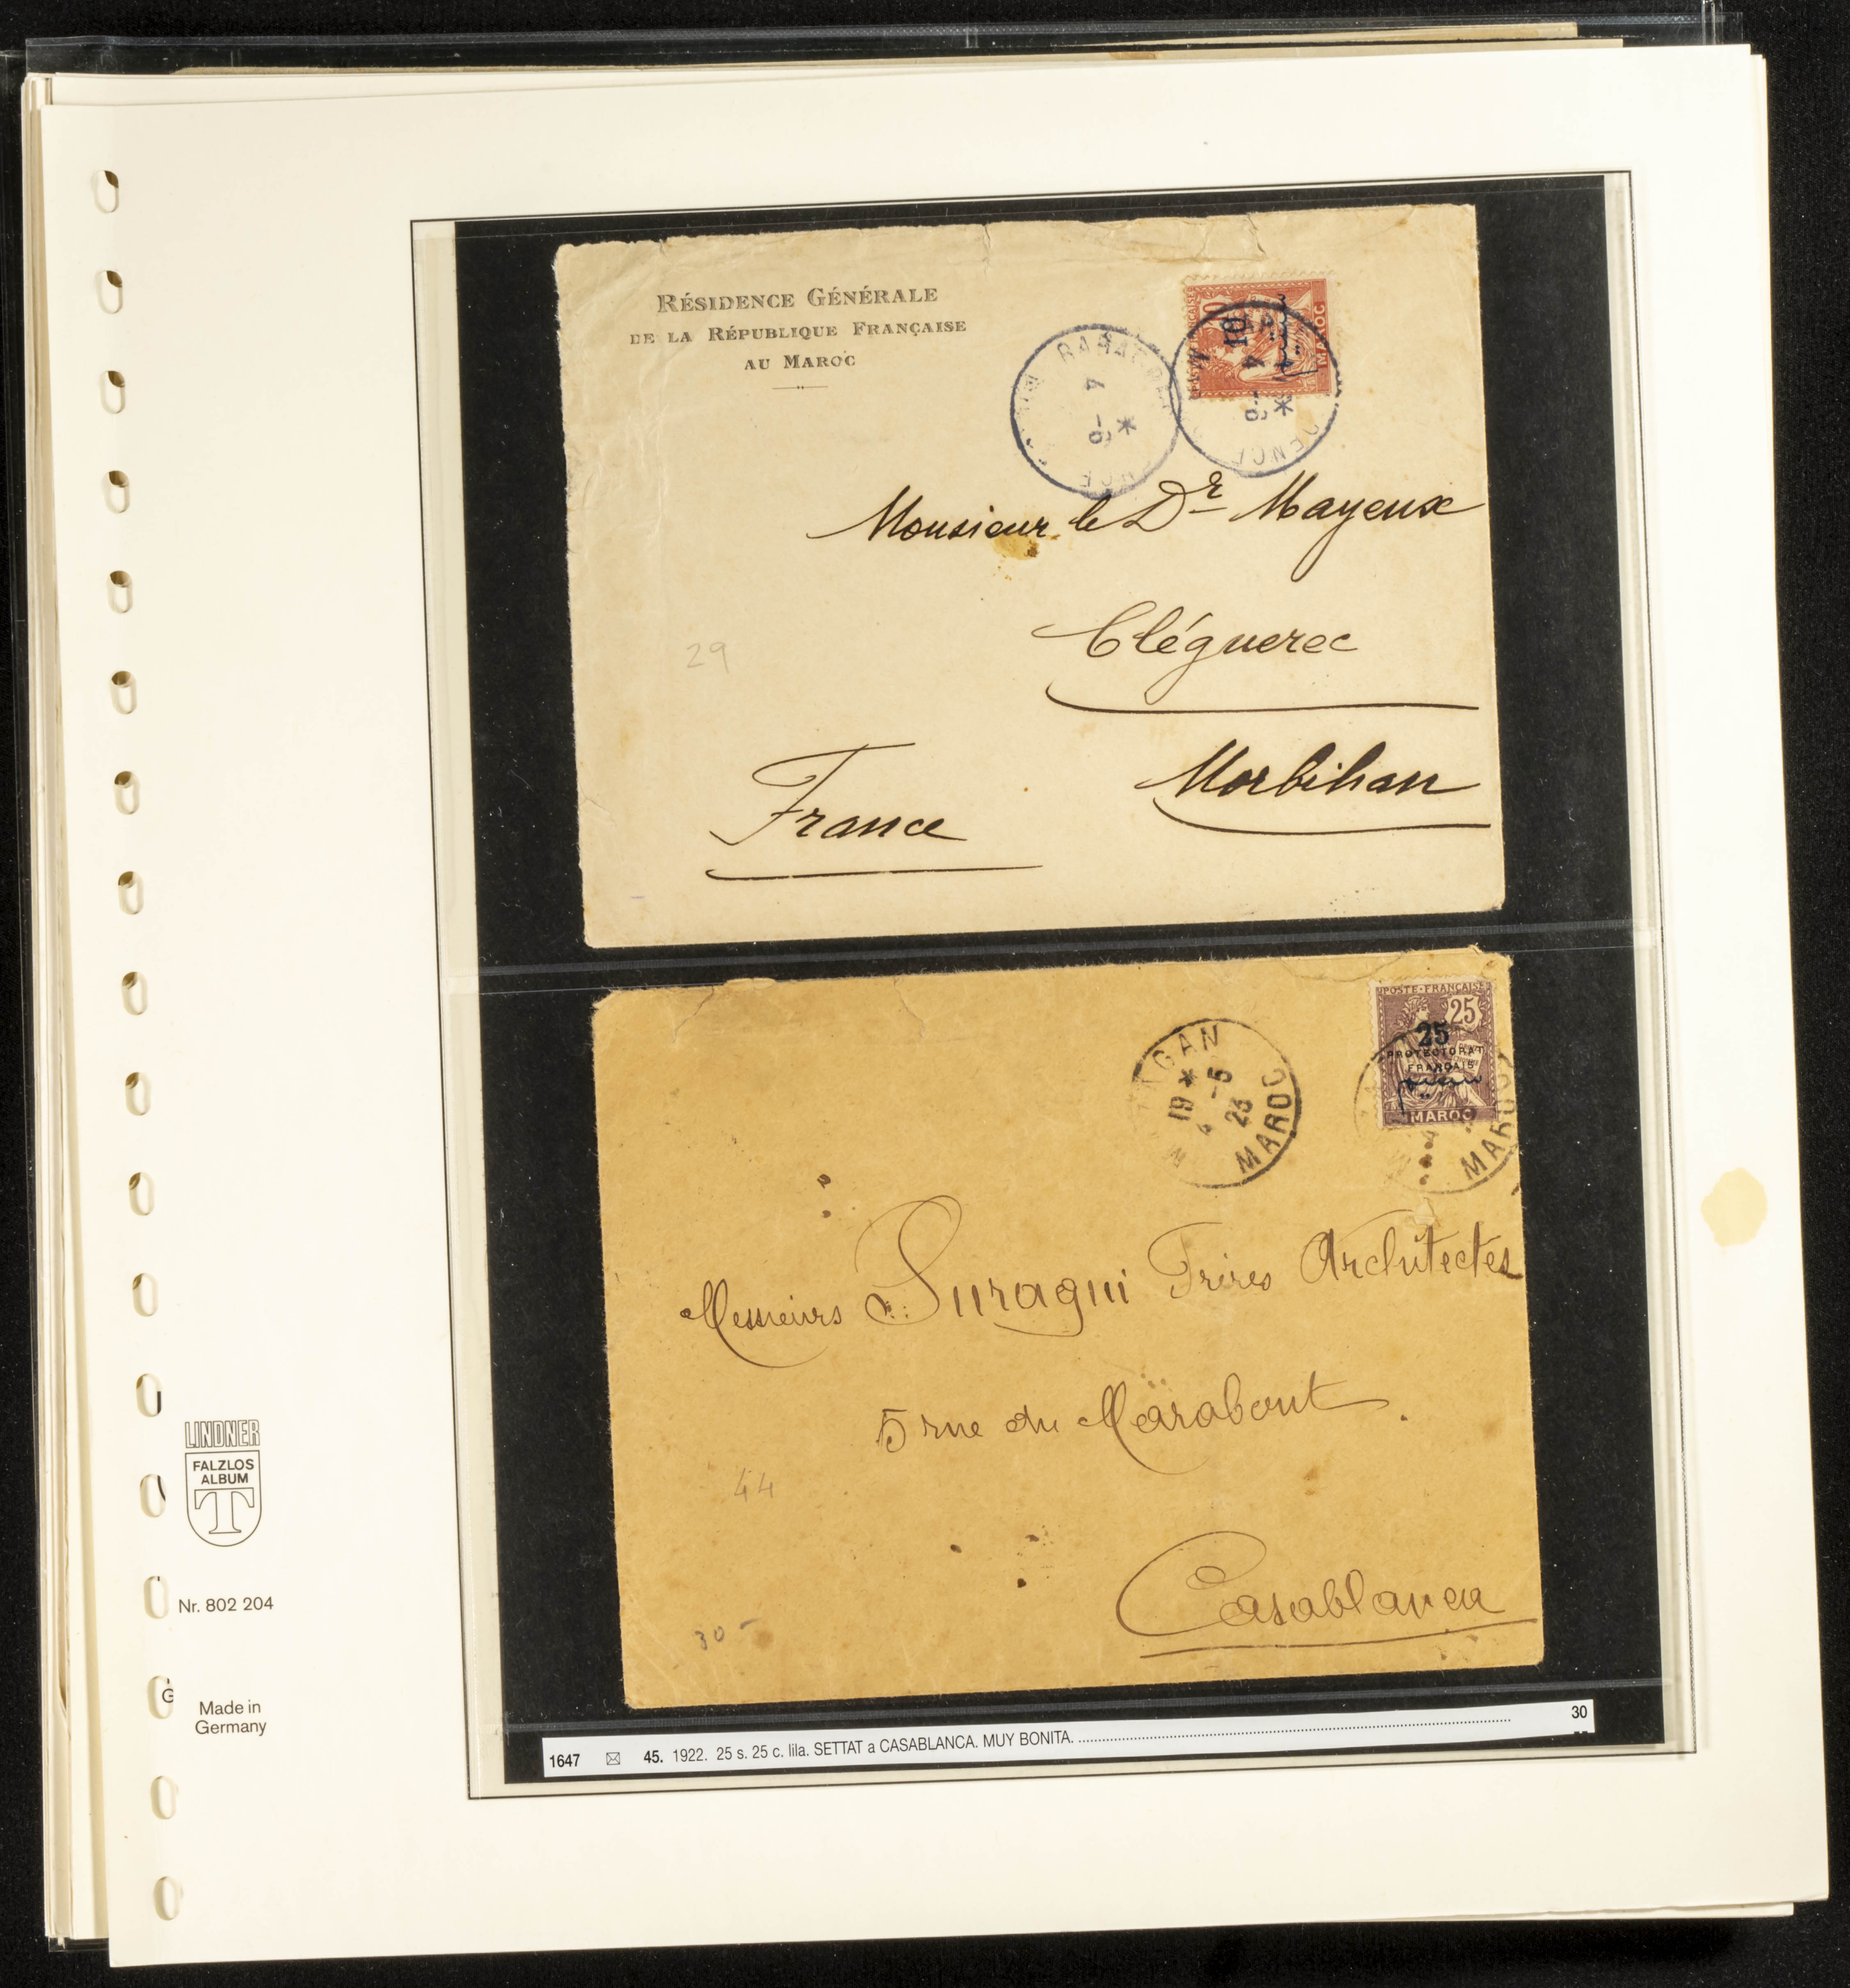 RÉSIDENCE GÉNÉRALE
DE LA RÉPUBLIQUE FRANÇAISE
AU MAROC
10
10
MAROC
RABAT
4 -6
4 -6
Monsieur le Dr Mayeux
Cléguerec
Morbihan
France
29
POSTE FRANÇAISE
25
25
PROTECTORAT
FRANÇAIS
MAROC
19 *
4 -5
23
MAROC
MAROC
Messieurs Suraqui Frères Architectes
5 rue du Marabout
44
Casablanca
30-
1647 45. 1922. 25 s. 25 c. lila. SETTAT a CASABLANCA. MUY BONITA. 30
LINDNER
FALZLOS
ALBUM
T
Nr. 802 204
Made in
Germany